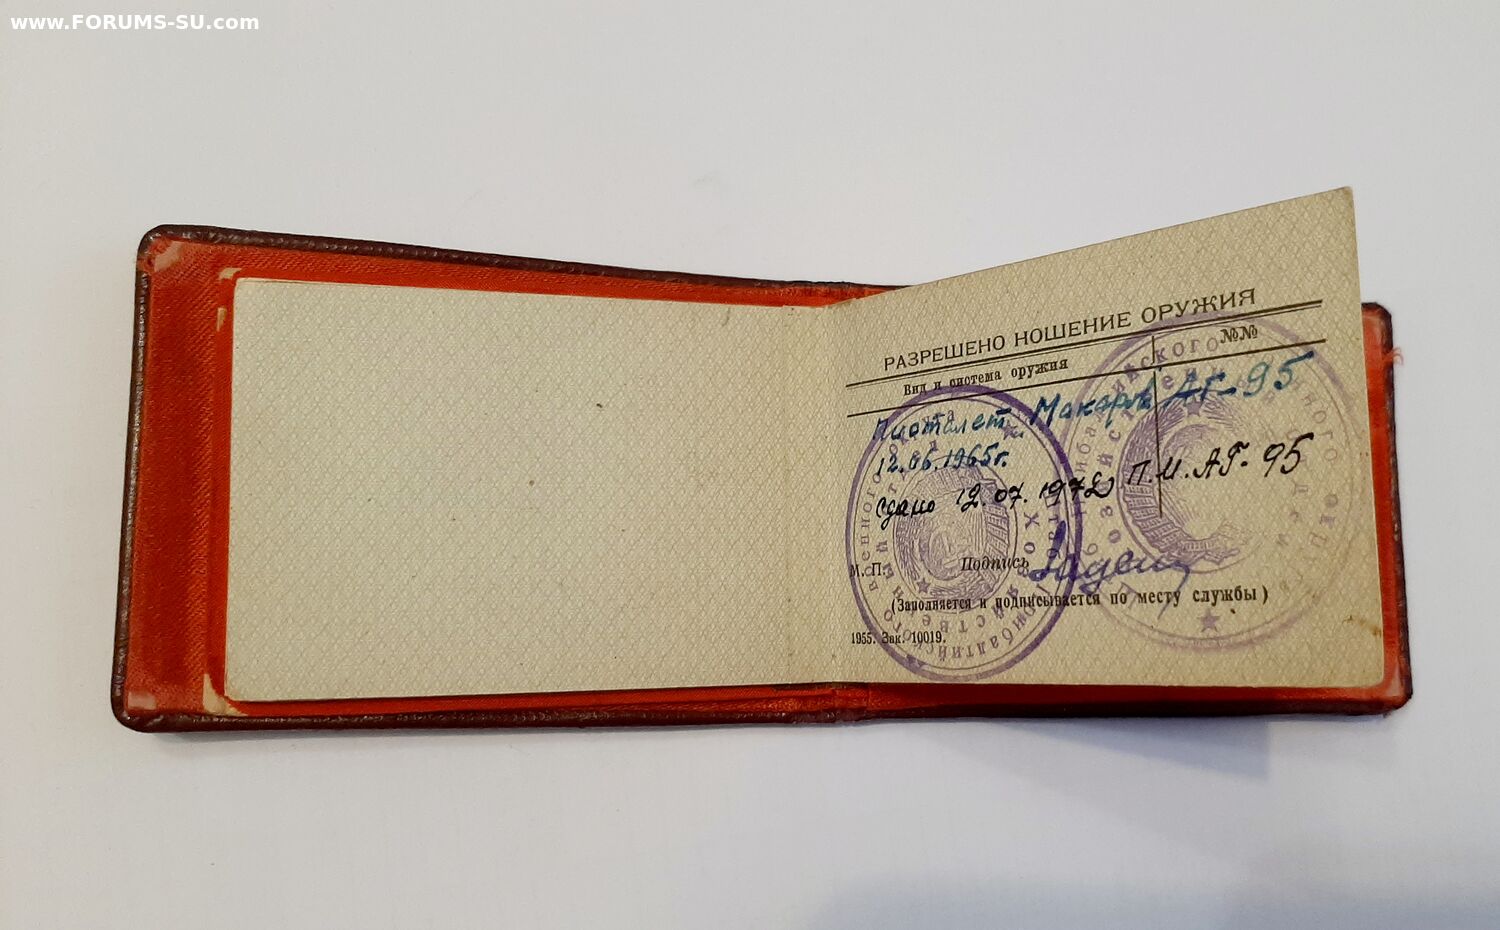 www.FORUMS-SU.com
РАЗРЕШЕНО НОШЕНИЕ ОРУЖИЯ
Вид и система оружия №№
Пистолет Макарова АГ-95
12.05.1965г.
Сдано 12.07.1972 П.М. АГ-95
М. П. Подпись
(Заполняется и подписывается по месту службы)
1955. Зак. 10019.